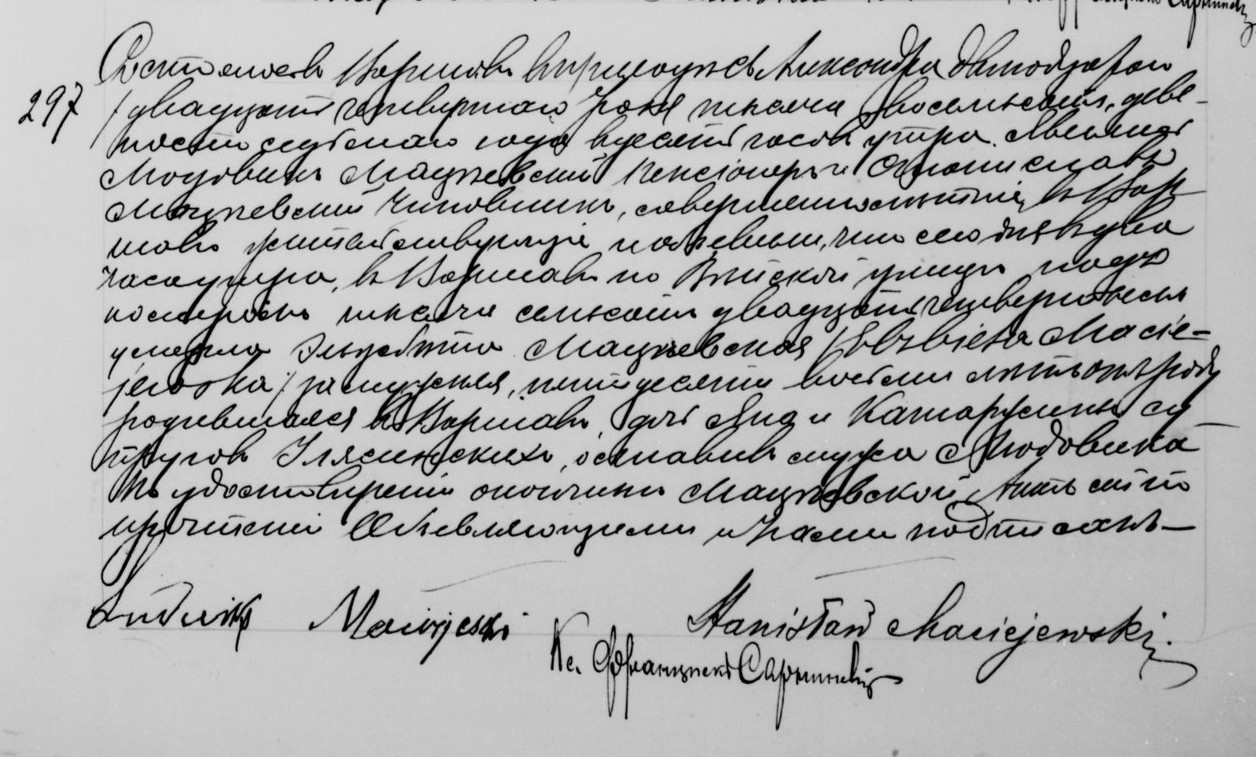 297
Состоялось въ Варшавѣ въ приходѣ Св. Александра двенадцатаго
/двадцать четвертаго/ Iюня тысяча восемьсотъ девя-
носто седьмаго года въ десять часовъ утра. Явились
Людовикъ Мацѣевскiй Пенсiонеръ и Станиславъ
Мацѣевскiй Чиновникъ, совершеннолѣтнiе, въ Вар-
шавѣ жительствующiе, и объявили, что сего дня въ два
часа утра, въ Варшавѣ по Вейской улицѣ подъ
номеромъ тысяча семьсотъ двадцать четвертымъ
умерла Эльжбѣта Мацѣевская /Elżbieta Macie-
jewska/ замужняя, пятидесяти восьми лѣтъ отъ роду
родившаяся въ Варшавѣ, дочь Яна и Катаржины су-
пруговъ оставивъ мужа Людовика
По удостовѣренiи о кончинѣ Мацѣевской, Актъ сей по
прочтенiи Объявляющими и Нами подписанъ.—
Ludwik Maciejewski Stanisław Maciejewski.
Кс. Францискъ